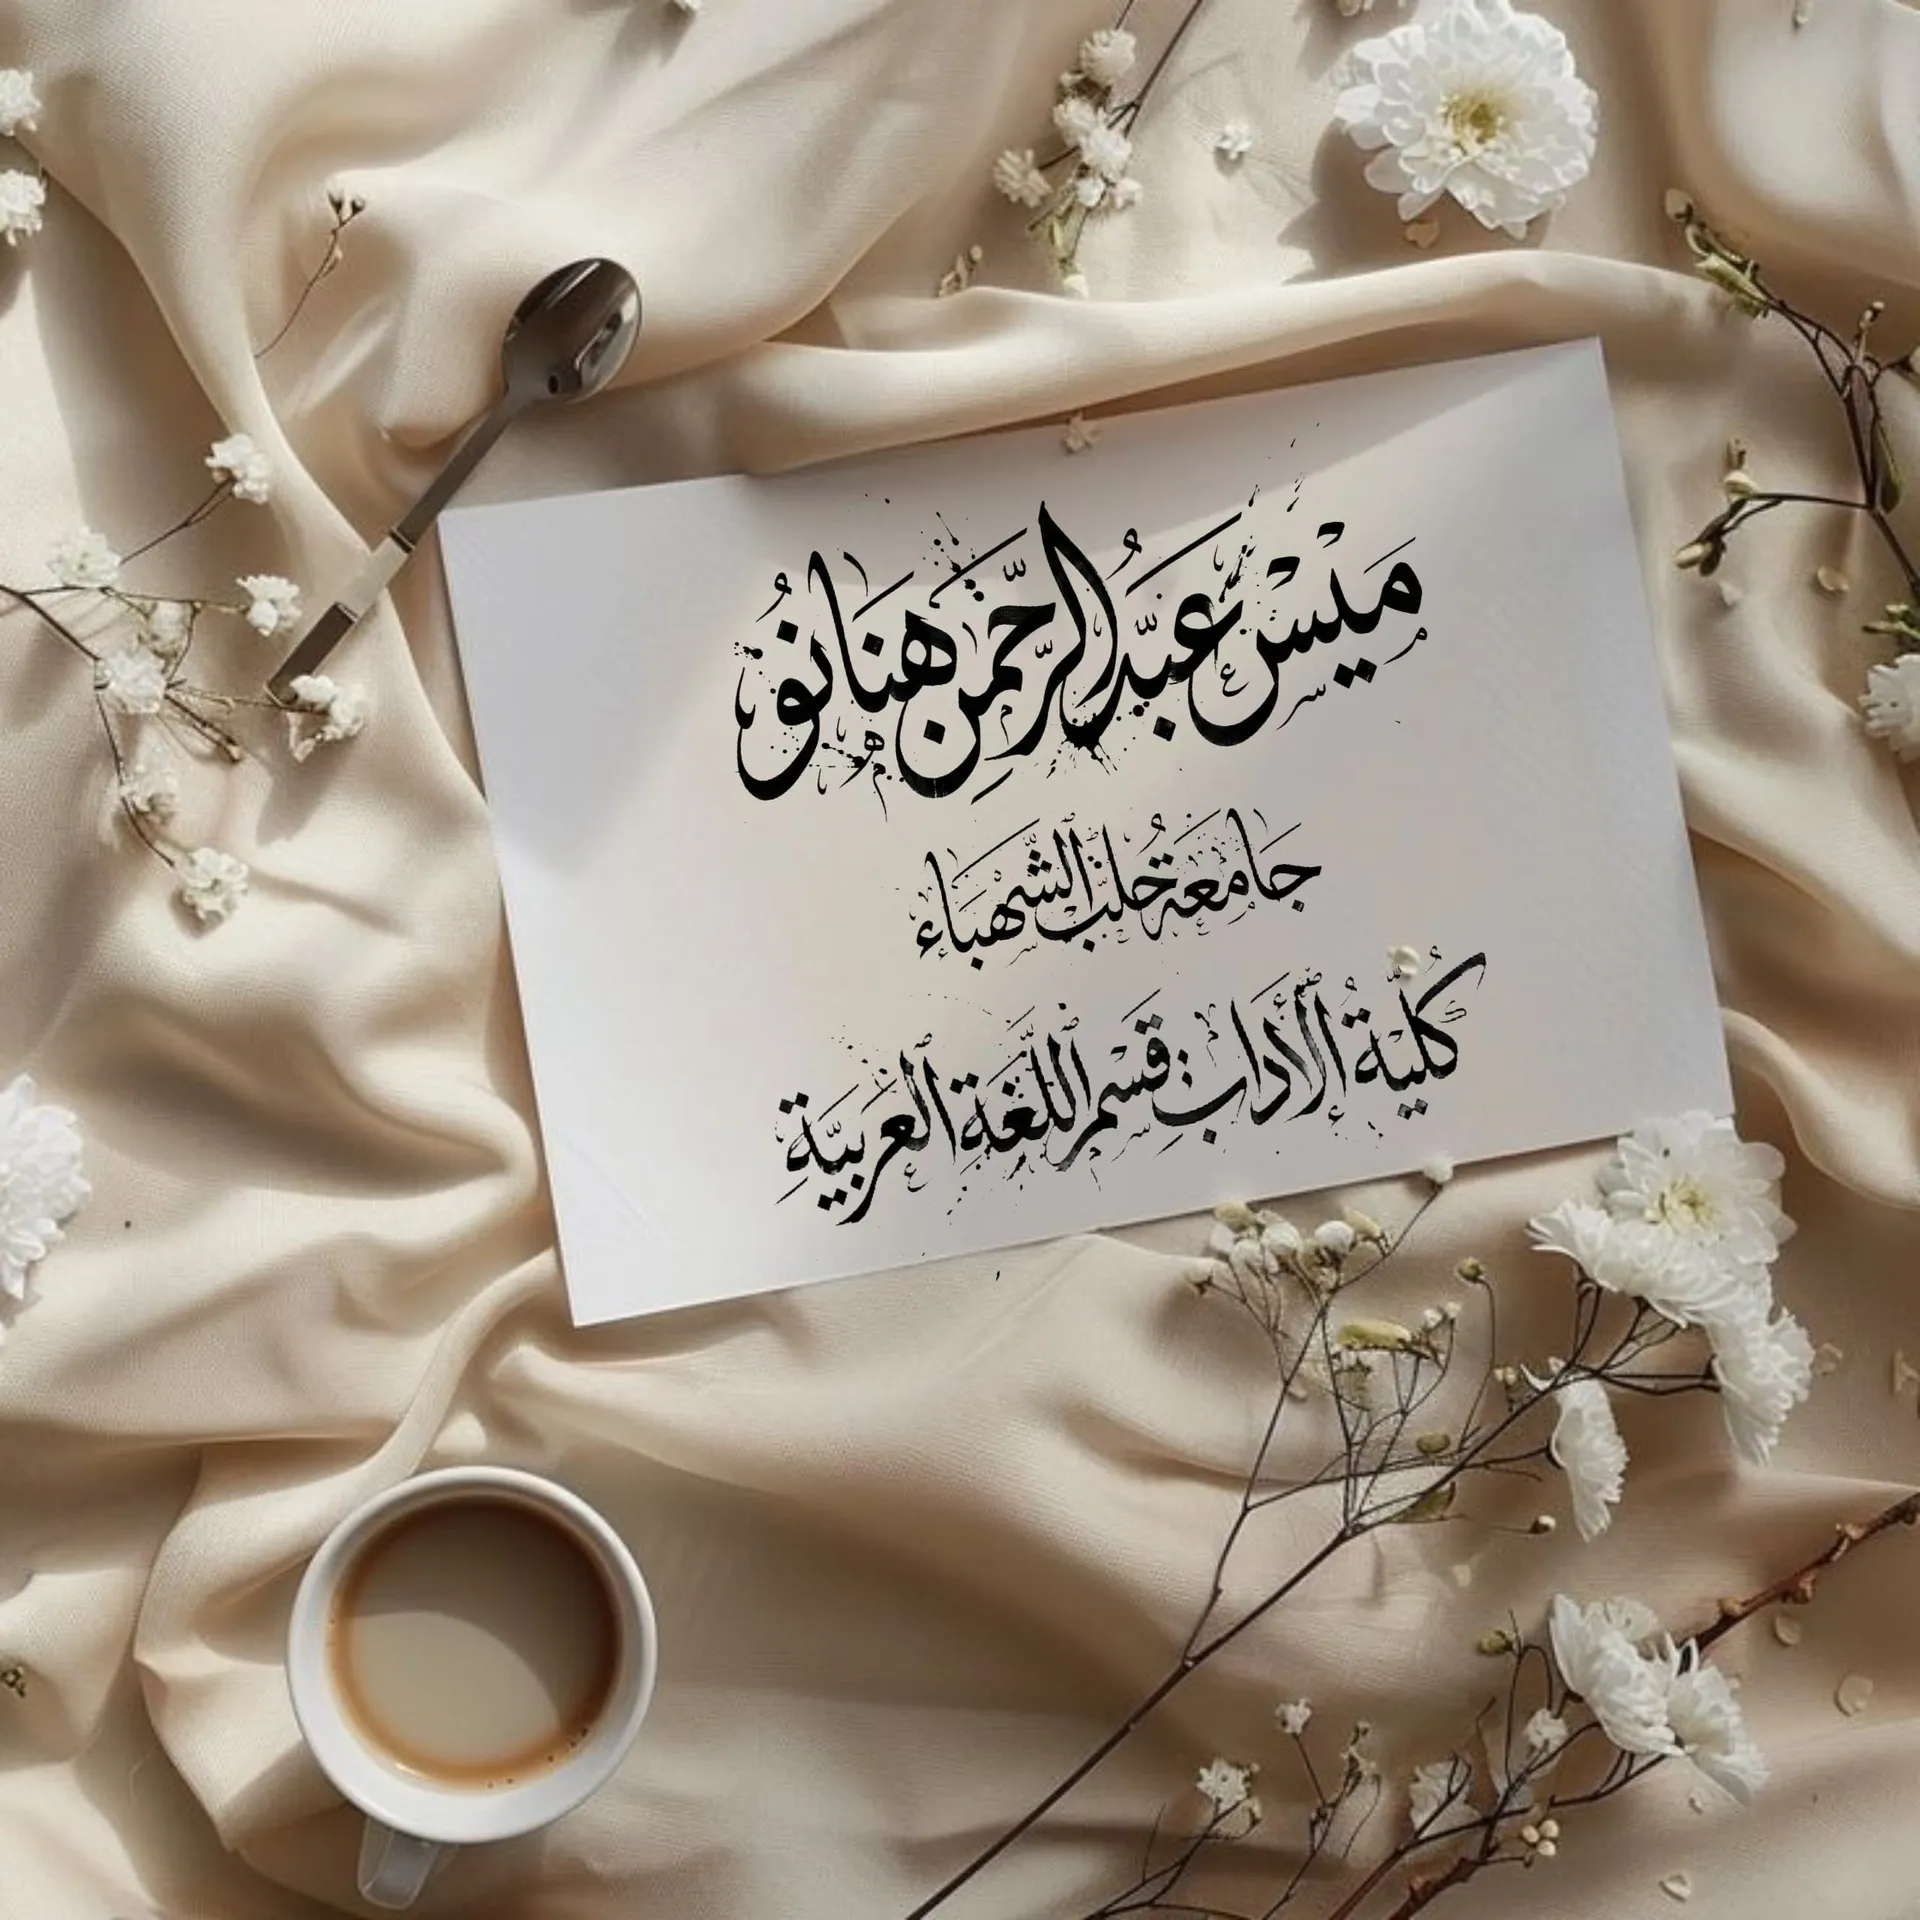 ميس عبد الرحمن هنانو
جامعة حلب الشهباء
كلية الآداب قسم اللغة العربية